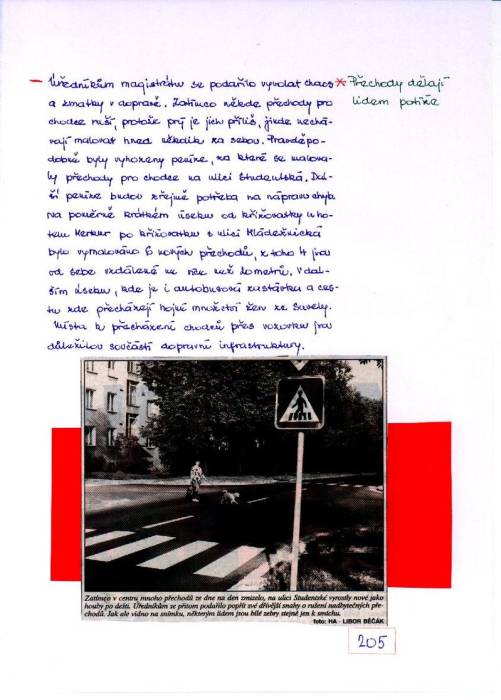 – Úředníkům magistrátu se podařilo vyvolat chaos
a zmatky v dopravě. Zatímco někde přechody pro
chodce ruší, protože prý je jich příliš, jinde nechá-
vají malovat hned několik za sebou. Pravděpo-
dobně byly vyhozeny peníze, za které se malova-
ly přechody pro chodce na ulici Studentská. Dal-
ší peníze budou zřejmě potřeba na nápravu chyb.
Na poměrně krátkém úseku od křižovatky u ho-
telu Merkur po křižovatku s ulicí Mládežnická
bylo vymalováno 6 nových přechodů, z toho 4 jsou
od sebe vzdálené ne více než 20 metrů. V dal-
ším úseku, kde je i autobusová zastávka a ces-
tu zde přecházejí hojné množství žen ze
Místa k přecházení chodců přes vozovku jsou
důležitou součástí dopravní infrastruktury.
* Přechody dělají
lidem potíže
Zatímco v centru mnoho přechodů ze dne na den zmizelo, na ulici Studentské vyrostly nové jako
houby po dešti. Úředníkům se přitom podařilo popřít své dřívější snahy o rušení nadbytečných pře-
chodů. Jak ale vidno na snímku, některým lidem jsou bílé zebry stejně jen k smíchu.
foto: HA - LIBOR BĚČÁK
205